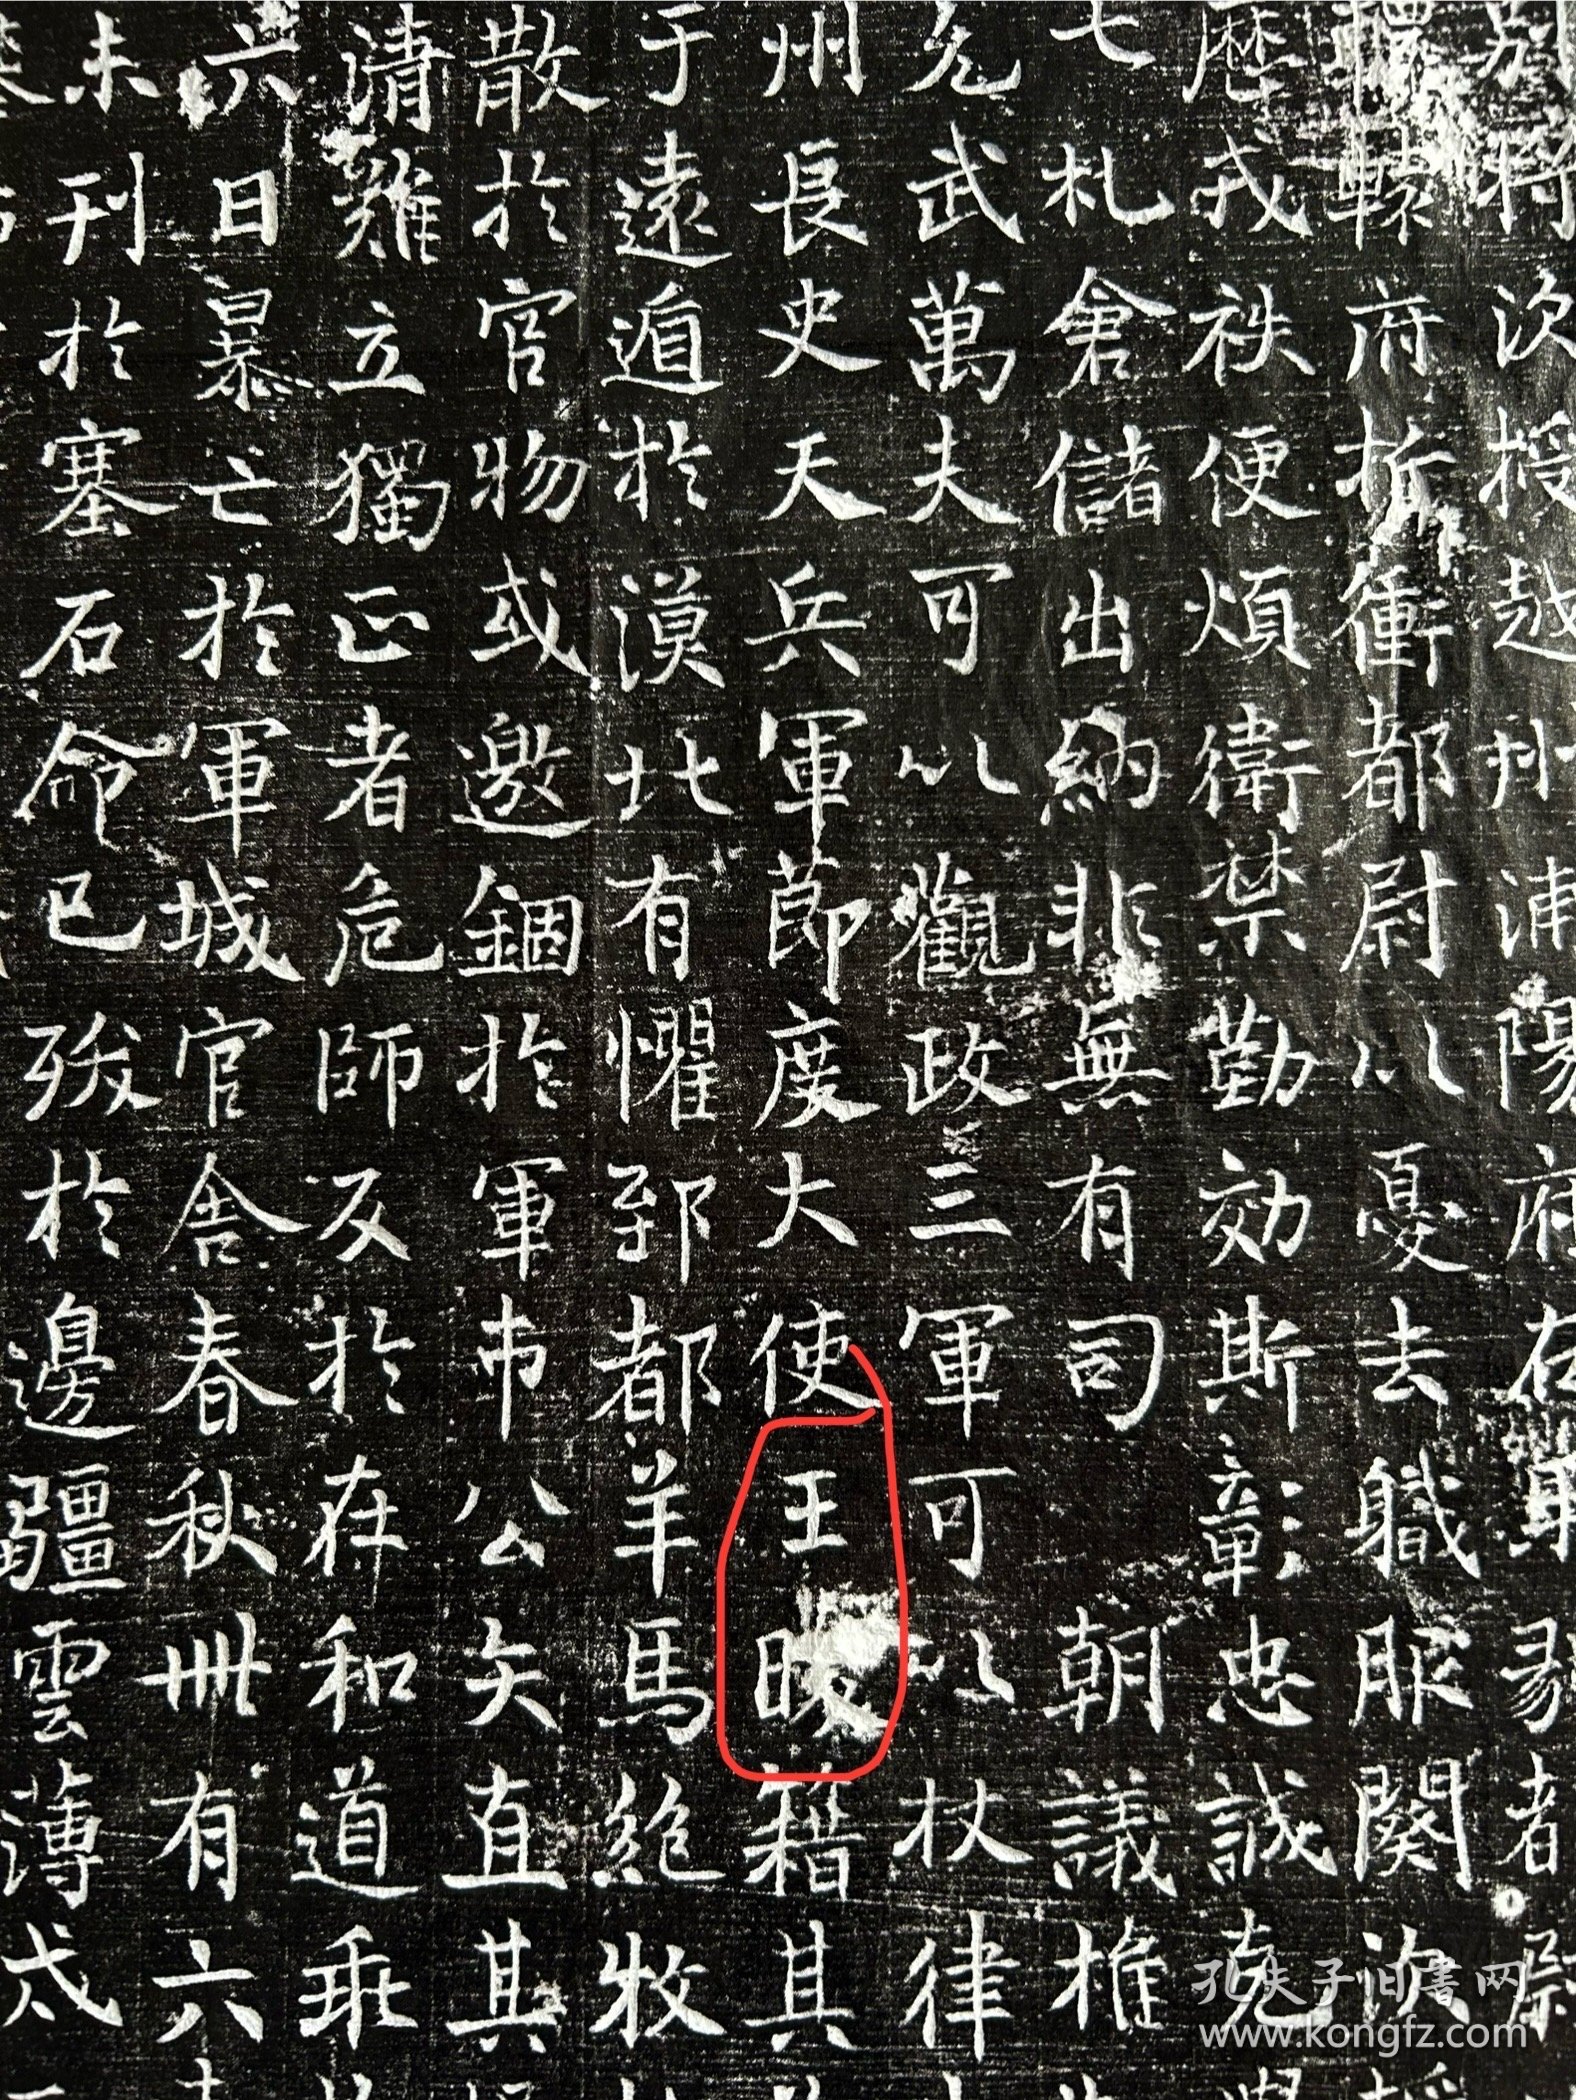 別將次授越州浦陽府右果毅者
轘轅府折衝都尉以憂去職服闋次授
歷戎秩便煩衛禁勤効斯彰忠誠克
七札倉儲出納非無有司 朝議推
允武萬夫可以觀政三軍可以杖律
州長史天兵軍節度大使王晙籍其
于遠遁於漠北有懼郅都羊馬絕牧
散於官物或邀錮於軍市公矢直其
清難立獨正者危師反於在和道乖
六日暴亡於軍城官舍春秋卌有六
未刊於塞石命已殁於邊疆雲薄戍
孔夫子旧书网
www.kongfz.com